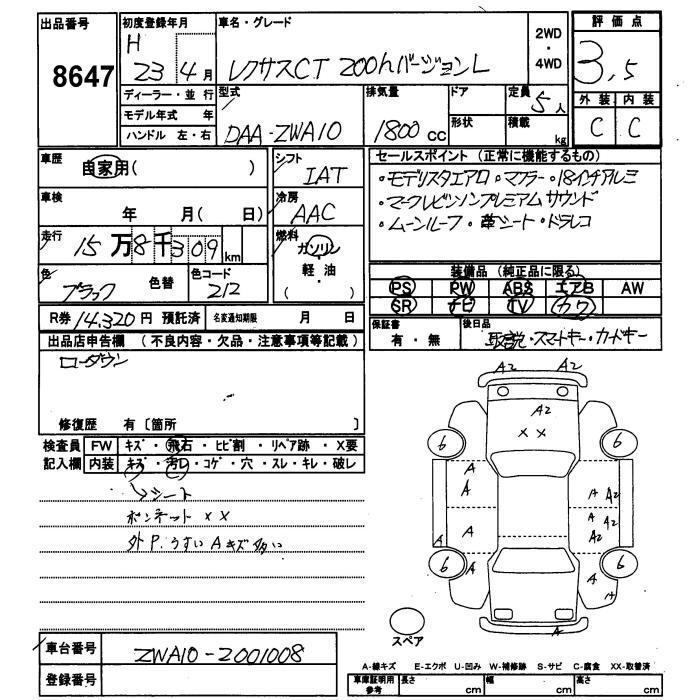 出品番号
8647
初度登録年月
H
23 4月
車名・グレード
レクサスCT 200hバージョンL
2WD
・
4WD
評価点
3,5
外装 内装
C C
ディーラー・並行
モデル年式 年
ハンドル 左・右
型式
DAA-ZWA10
排気量
1800cc
ドア
形状
定員
5人
積載
kg
車歴
自家用( )
車検
年 月( 日)
走行
15万8千309km
色
ブラック
色替
色コード
212
シフト
IAT
冷房
AAC
燃料
ガソリン
軽・油
( )
セールスポイント (正常に機能するもの)
・モデリスタエアロ・マフラー・18インチアルミ
・マークレビンソンプレミアムサウンド
・ムーンルーフ・革シート・ドラレコ
装備品 (純正品に限る)
PS PW ABS エアB AW
SR ナビ TV カワ
R券 14,320円 預託済
名変通知期限 月 日
保証書
有・無
後日品
取説・スマートキー・カードキー
出品店申告欄 (不良内容・欠品・注意事項等記載)
ローダウン
修復歴 有〔箇所 〕
検査員
記入欄
FW キズ・飛石・ヒビ割・リペア跡・X要
内装 キズ・汚レ・コゲ・穴・スレ・キレ・破レ
シート
ボンネット XX
外P.うすいAキズ多い
A2
A2
A2
X X
6
6
A
A
A A2
A
A A2
A2
A
6
6
A
A
A
スペア
車台番号
ZWA10-2001008
登録番号
A-線キズ E-エクボ U-凹み W-補修跡 S-サビ C-腐食 XX-取替済
車庫証明用
参考
長さ cm
幅 cm
高さ cm